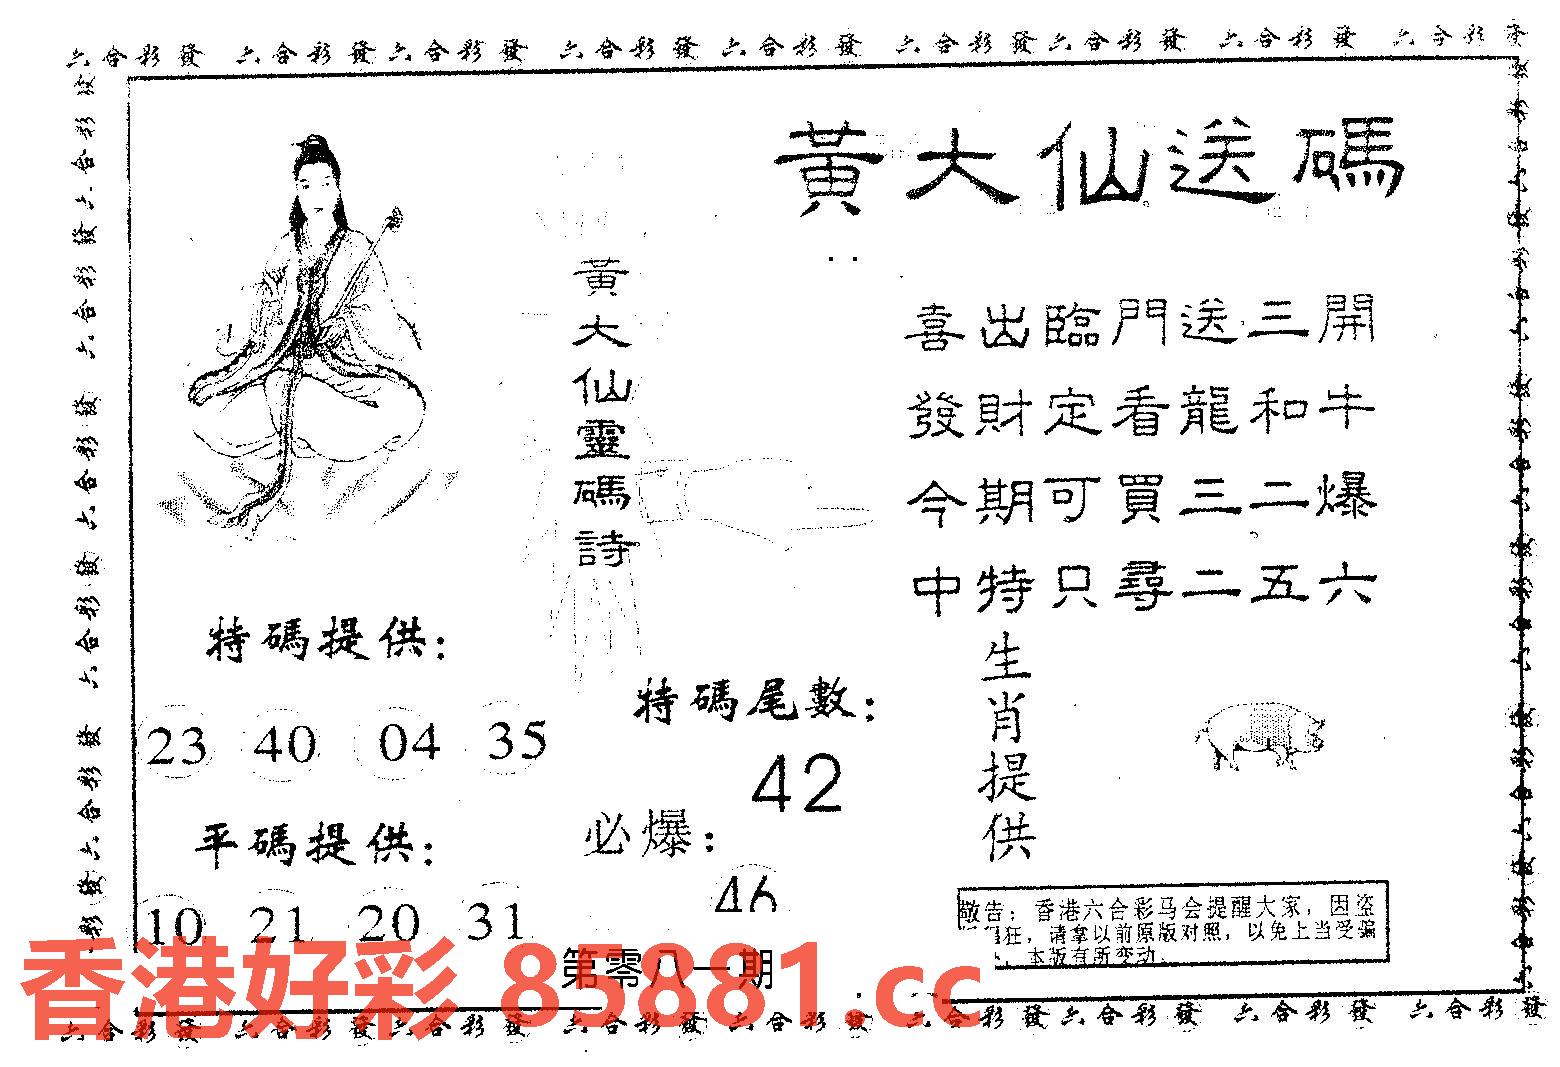 六合彩發 六合彩發六合彩發 六合彩發 六合彩發 六合彩發六合彩發 六合彩發 六合彩發
黃大仙送碼
黃大仙靈碼詩
喜出臨門送三開
發財定看龍和牛
今期可買三二爆
中特只尋二五六
特碼提供:
23 40 04 35
平碼提供:
10 21 20 31
特碼尾數:
42
必爆:
46
生肖提供
敬告: 香港六合彩马会提醒大家, 因盗
狂, 请拿以前原版对照, 以免上当受骗
, 本版有所变动.
第零八一期
香港好彩 85881.cc
六合彩發 六合彩發六合彩發 六合彩發 六合彩發 六合彩發六合彩發 六合彩發 六合彩發